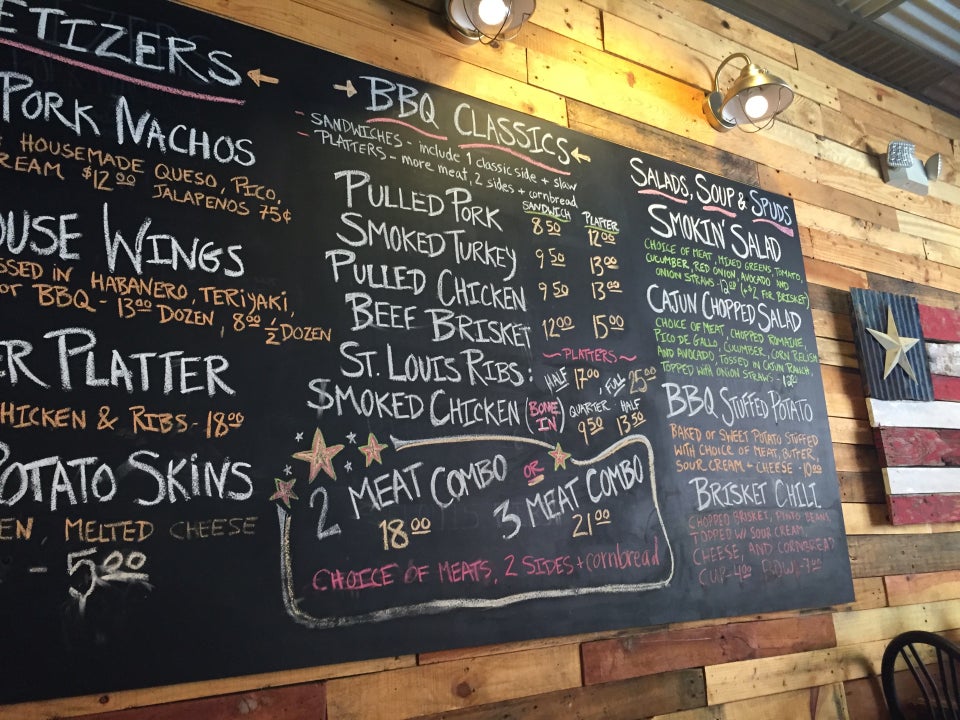 ETIZERS
PORK NACHOS
HOUSEMADE QUESO, PICO,
REAM $12.00 JALAPENOS 75¢
OUSE WINGS
SSED IN HABANERO, TERIYAKI,
OR BBQ - 13.00 DOZEN, 8.00 ½ DOZEN
ER PLATTER
HICKEN & RIBS - 18.00
POTATO SKINS
EN, MELTED CHEESE
- 5.00
BBQ CLASSICS
- SANDWICHES - include 1 classic side + slaw
- PLATTERS - more meat, 2 sides + cornbread
SANDWICH PLATTER
PULLED PORK 8.50 12.00
SMOKED TURKEY 9.50 13.00
PULLED CHICKEN 9.50 13.00
BEEF BRISKET 12.00 15.00
~PLATTERS~
ST. LOUIS RIBS: HALF 17.00, FULL 25.00
SMOKED CHICKEN (BONE IN) QUARTER 9.50 HALF 13.50
2 MEAT COMBO OR 3 MEAT COMBO
18.00 21.00
CHOICE OF MEATS, 2 SIDES + cornbread
SALADS, SOUP & SPUDS
SMOKIN' SALAD
CHOICE OF MEAT, MIXED GREENS, TOMATO,
CUCUMBER, RED ONION, AVOCADO AND
ONION STRAWS - 12.00 (+$2 FOR BRISKET)
CAJUN CHOPPED SALAD
CHOICE OF MEAT, CHOPPED ROMAINE,
PICO DE GALLO, CUCUMBER, CORN RELISH
AND AVOCADO, TOSSED IN CAJUN RANCH,
TOPPED WITH ONION STRAWS - 12.00
BBQ STUFFED POTATO
BAKED OR SWEET POTATO STUFFED
WITH CHOICE OF MEAT, BUTTER,
SOUR CREAM + CHEESE - 10.00
BRISKET CHILI
CHOPPED BRISKET, PINTO BEANS,
TOPPED W/ SOUR CREAM,
CHEESE, AND CORNBREAD
CUP - 4.00 BOWL -